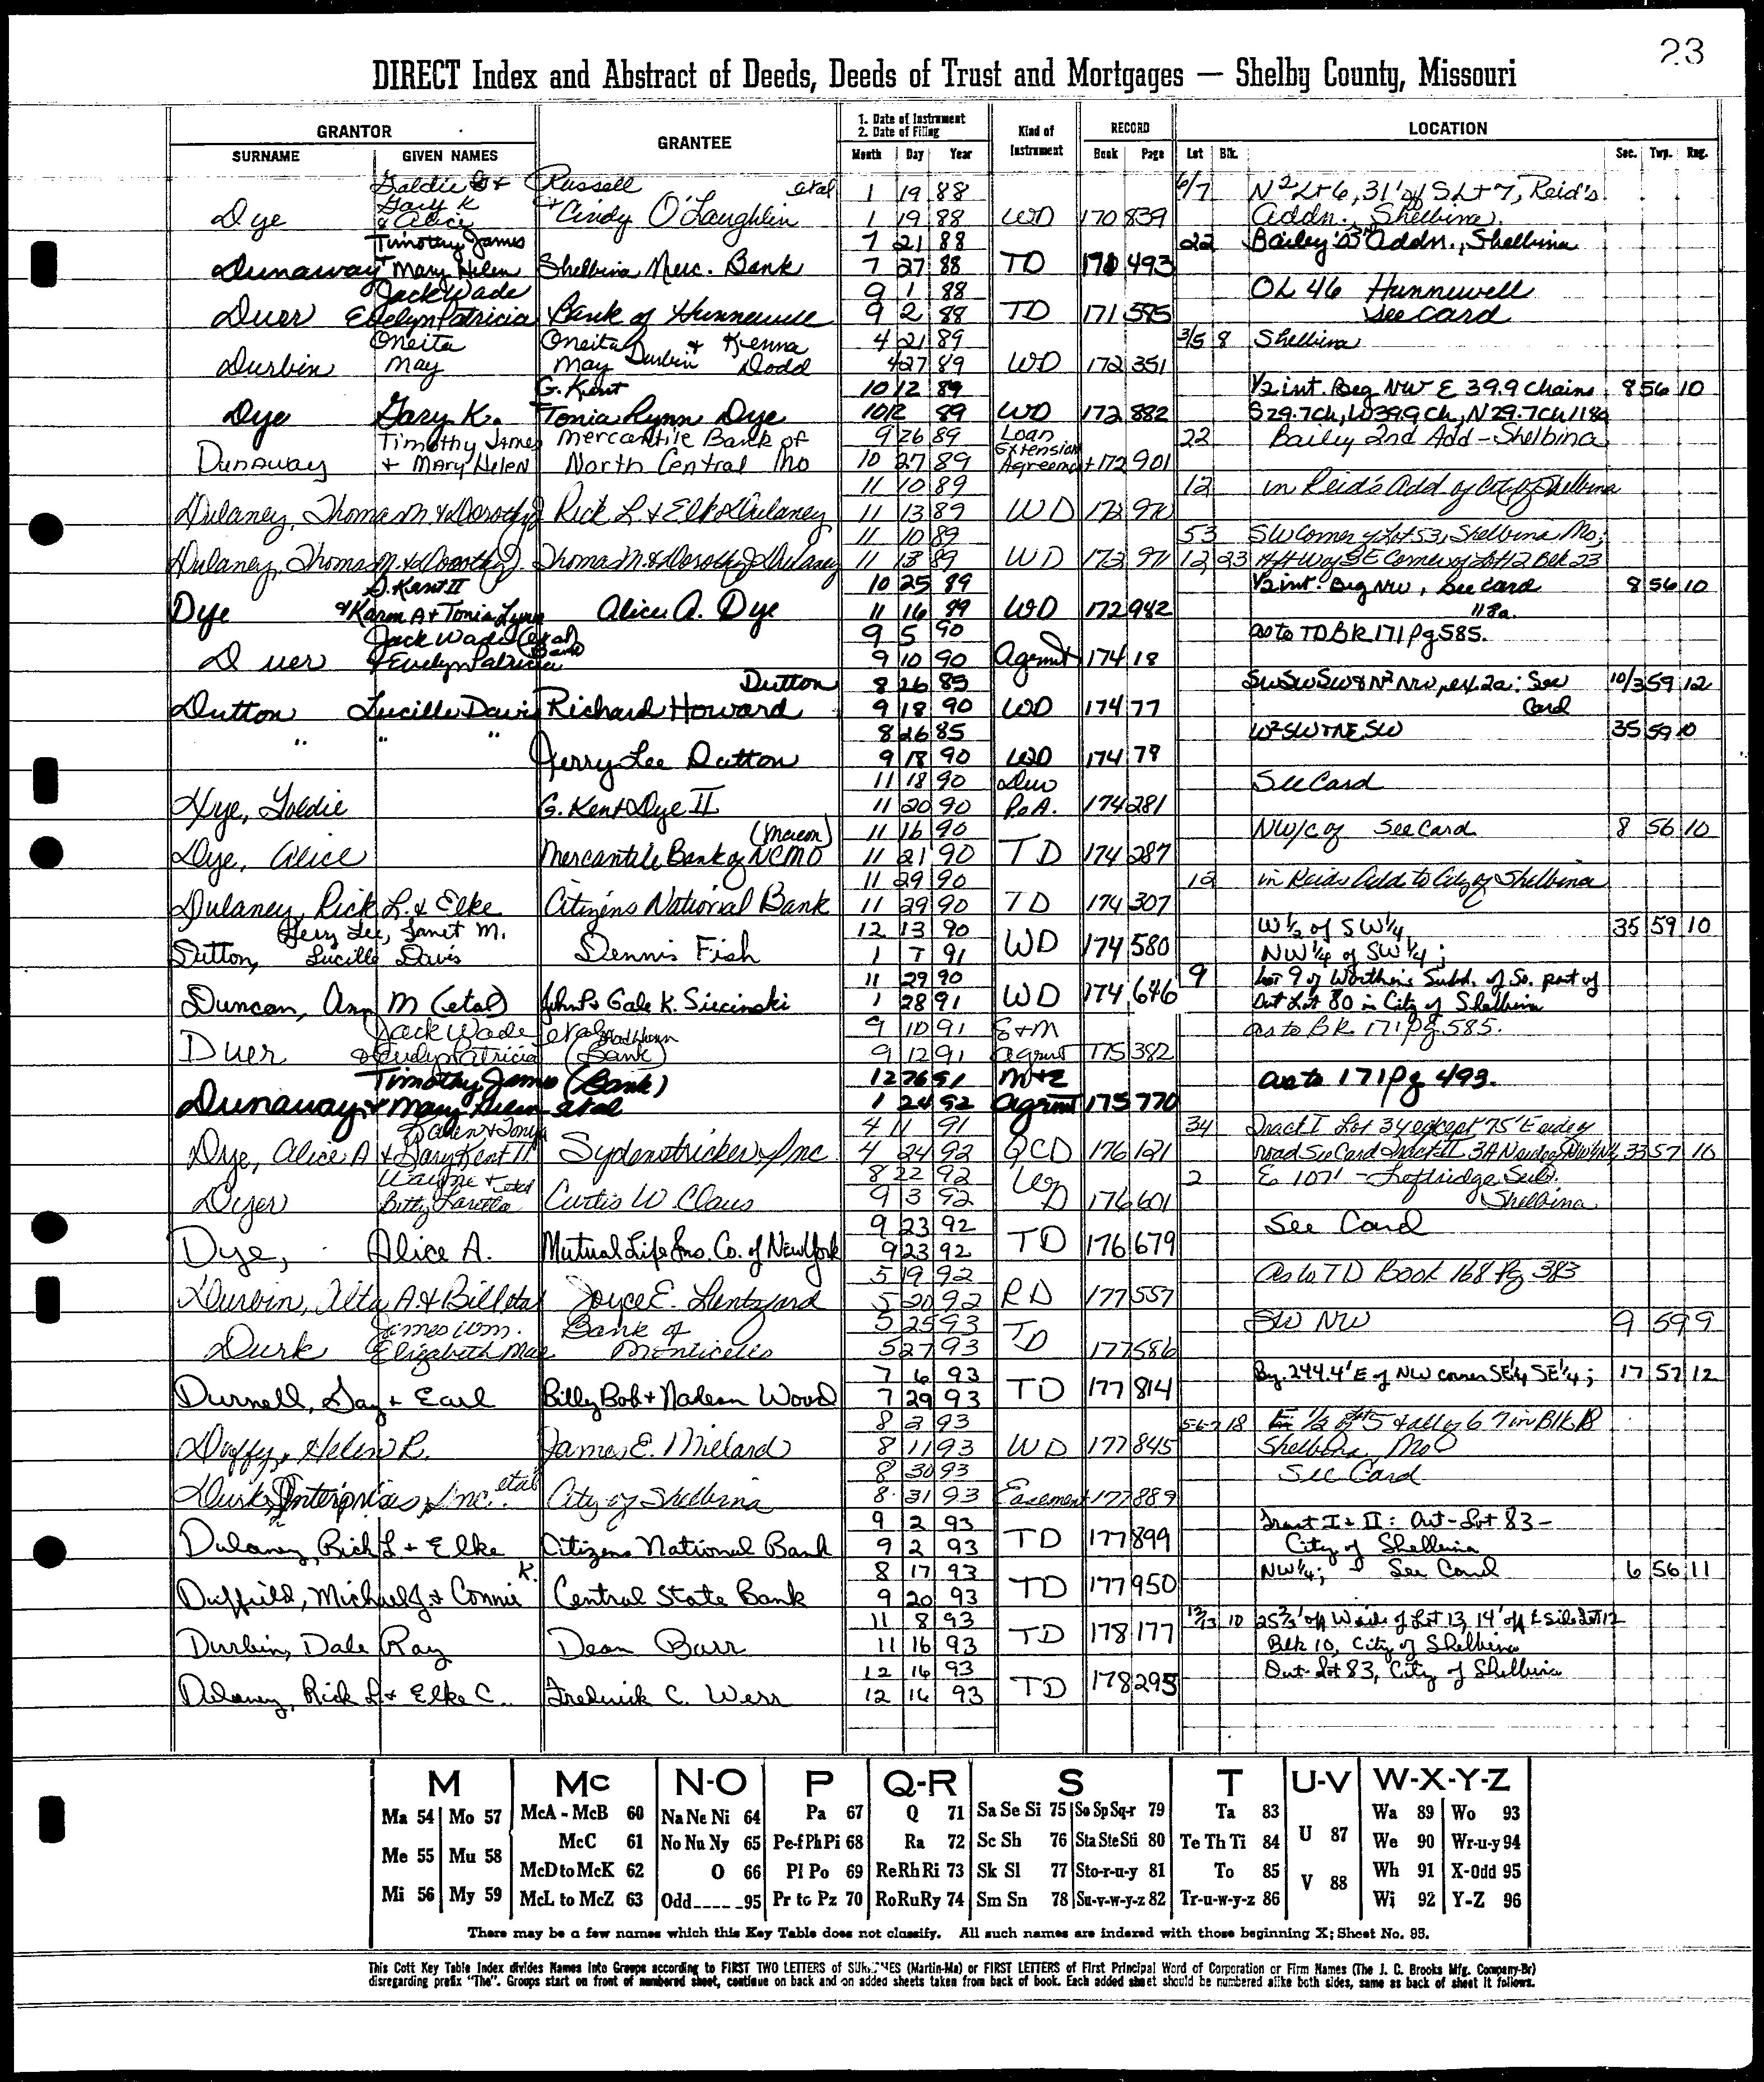 23
DIRECT Index and Abstract of Deeds, Deeds of Trust and Mortgages — Shelby County, Missouri
GRANTOR GRANTEE 1. Date of Instrument 2. Date of Filing Kind of Instrument RECORD LOCATION
SURNAME GIVEN NAMES Month Day Year Book Page Lot Blk. Sec. Twp. Rng.
Goldie & Russell etal 1 19 88 6/7 N² Lt 6, 31' of S Lt 7, Reid's
Dye Gary K & Alice + Cindy O'Laughlin 1 19 88 WD 170 839 Addn. Shelbina
Timothy James 7 21 88 22 Bailey's Addn., Shelbina
Dunaway + Mary Helen Shelbina Merc. Bank 7 27 88 TD 171 493
Jack Wade 9 1 88 OL 46 Hunnewell
Duer Evelyn Patricia Bank of Hunnewell 9 2 88 TD 171 585 See Card
Oneita Oneita + Kenna 4 21 89 3/5 8 Shelbina
Durbin May May Durbin Dodd 4 27 89 WD 172 351
G. Kent 10 12 89 1/2 int. Beg NW E 39.9 Chains 8 56 10
Dye Gary K. Tonia Lynn Dye 10 12 89 WD 172 882 S 29.7 Ch, W 39.9 Ch, N 29.7 Ch 118a
Timothy James Mercantile Bank of 9 26 89 Loan Extension 22 Bailey 2nd Add - Shelbina
Dunaway + Mary Helen North Central Mo 10 27 89 Agreement 172 901
11 10 89 12 in Reid's Add of City of Shelbina
Dulaney, Thomas M & Dorothy J Rick L. & Elke Dulaney 11 13 89 WD 172 970
11 10 89 53 SW Corner of Lot 53, Shelbina Mo;
Dulaney, Thomas M. & Dorothy J. Thomas M. & Dorothy J Dulaney 11 13 89 WD 172 971 12 23 W of SE Corner of Lot 12 Blk 23
G. Kent II 10 25 89 1/2 int. Beg NW, See Card 8 56 10
Dye & Karen A + Tonia Lynn Alice A. Dye 11 16 89 WD 172 982 118a.
Jack Wade (etal) 9 5 90 as to TD BK 171 Pg 585.
Duer & Evelyn Patricia Bank 9 10 90 Agemnt 174 18
Dutton 8 26 85 SWSWSW & N² NW, ex. 2a: See 10/3 59 12
Dutton Lucille Davis Richard Howard 9 18 90 WD 174 77 Card
" " " 8 26 85 W² SW + NE SW 35 59 10
Jerry Lee Dutton 9 18 90 WD 174 78
11 18 90 Duo See Card
Dye, Goldie G. Kent Dye II 11 20 90 PoA. 174 281
(Macon) 11 16 90 NW/c of See Card 8 56 10
Dye, Alice Mercantile Bank of NCMO 11 21 90 TD 174 287
11 29 90 12 in Reids Add to City of Shelbina
Dulaney, Rick L. & Elke Citizens National Bank 11 29 90 TD 174 307
Jerry Lee, Janet M. 12 13 90 W 1/2 of SW 1/4 35 59 10
Dutton, Lucille Davis Dennis Fish 1 7 91 WD 174 580 NW 1/4 of SW 1/4;
11 29 90 9 Lot 9 of Worthen's Subd. of So. part of
Duncan, Ann M (etal) John P & Gale K. Siecinski 1 28 91 WD 174 646 Out Lot 80 in City of Shelbina
Jack Wade etal 9 10 91 E+M as to BK. 171 Pg. 585.
Duer & Evelyn Patricia (Bank) 9 12 91 agrmt 175 382
Timothy James (Bank) 12 26 91 M+E as to 171 Pg 493.
Dunaway + Mary Helen etal 1 24 92 agrmt 175 770
Karen & Tonya 4 11 91 34 Tract I Lot 34 except 75' E side of
Dye, Alice A & Gary Kent II Sydenstricker Inc 4 24 92 QCD 176 121 road See Card Tract II 3A 33 57 10
Wayne & etal 8 22 92 2 E 107' - Leftridge Sub.
Dyer Betty Laretta Curtis W Claus 9 3 92 WD 176 601 Shelbina
9 23 92 See Card
Dye, Alice A. Mutual Life Ins. Co. of New York 9 23 92 TD 176 679
5 19 92 As to TD Book 168 Pg 383
Durbin, Alta A. & Bill etal Joyce E. 5 20 92 RD 177 557
James Wm. Bank of 5 25 93 SW NW 9 59 9
Durk Elizabeth Mae Monticello 5 27 93 TD 177 586
7 6 93 Beg. 244.4' E of NW corner SE 1/4 SE 1/4; 17 57 12
Durnell, Gay + Earl Billy Bob + Nadean Wood 7 29 93 TD 177 814
8 2 93 5-6-7 18 E 1/2 of 5 & all of 6 7 in Blk 18
Duffy, Helen R. James E. Millard 8 11 93 WD 177 845 Shelbina, Mo
8 30 93 See Card
Durk Enterprises, Inc. etal City of Shelbina 8 31 93 Easement 177 889
9 2 93 Tract I + II: Out-Lot 83 -
Dulaney, Rick L + Elke Citizens National Bank 9 2 93 TD 177 899 City of Shelbina
8 17 93 NW 1/4; See Card 6 56 11
Duffield, Michael J. + Connie K. Central State Bank 9 20 93 TD 177 950
11 8 93 12/13 10 25 2/3' off W side of Lot 13, 14' off E side Lot 12
Durbin, Dale Ray Dean Barr 11 16 93 TD 178 177 Blk 10, City of Shelbina
12 16 93 Out-Lot 83, City of Shelbina
Dulaney, Rick L + Elke C. Fredrick C. Werr 12 16 93 TD 178 295
M Mc N-O P Q-R S T U-V W-X-Y-Z
Ma 54 Mo 57 McA - McB 60 Na Ne Ni 64 Pa 67 Q 71 Sa Se Si 75 So Sp Sq-r 79 Ta 83 U 87 Wa 89 Wo 93
Me 55 Mu 58 McC 61 No Nu Ny 65 Pe-f Ph Pi 68 Ra 72 Sc Sh 76 Sta Ste Sti 80 Te Th Ti 84 We 90 Wr-u-y 94
McD to McK 62 O 66 Pl Po 69 Re Rh Ri 73 Sk Sl 77 Sto-r-u-y 81 To 85 V 88 Wh 91 X-Odd 95
Mi 56 My 59 McL to McZ 63 Odd 95 Pr to Pz 70 Ro Ru Ry 74 Sm Sn 78 Su-v-w-y-z 82 Tr-u-w-y-z 86 Wi 92 Y-Z 96
There may be a few names which this Key Table does not classify. All such names are indexed with those beginning X; Sheet No. 95.
This Cott Key Table Index divides Names Into Groups according to FIRST TWO LETTERS of SURNAMES (Martin-Ma) or FIRST LETTERS of First Principal Word of Corporation or Firm Names (The J. C. Brooks Mfg. Company-Br)
disregarding prefix "The". Groups start on front of numbered sheet, continue on back and on added sheets taken from back of book. Each added sheet should be numbered alike both sides, same as back of sheet it follows.